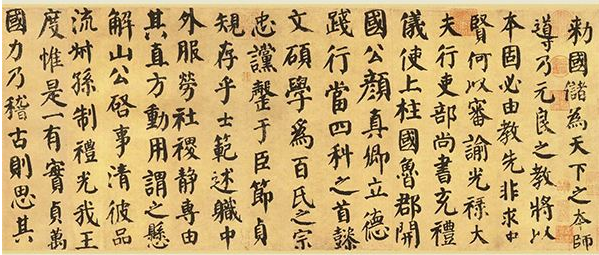 勅國儲為天下之本師
導乃元良之教將以
本固必由教先非求中
賢何以審諭光祿大
夫行吏部尚書充禮
儀使上柱國魯郡開
國公顏真卿立德
踐行當四科之首懿
文碩學爲百氏之宗
忠讜罄于臣節貞
規存乎士範述職中
外服勞社稷静專由
其直方動用謂之懸
解山公啓事清彼品
流叔孫制禮光我王
度惟是一有實貞萬
國力乃稽古則思其